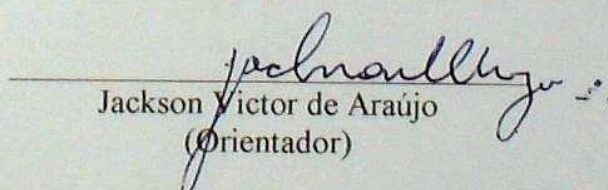 Jackson Victor de Araújo
(Orientador)